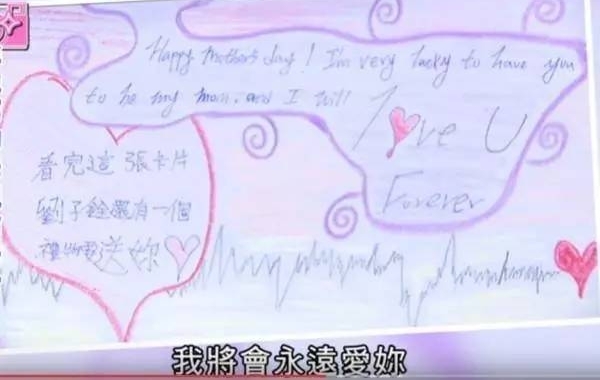 Happy Mother's day! I'm very lucky to have you
to be my mom. and I will
love U
Forever
看完這張卡片
劉子銓還有一個
禮物要送妳
我將會永遠愛妳